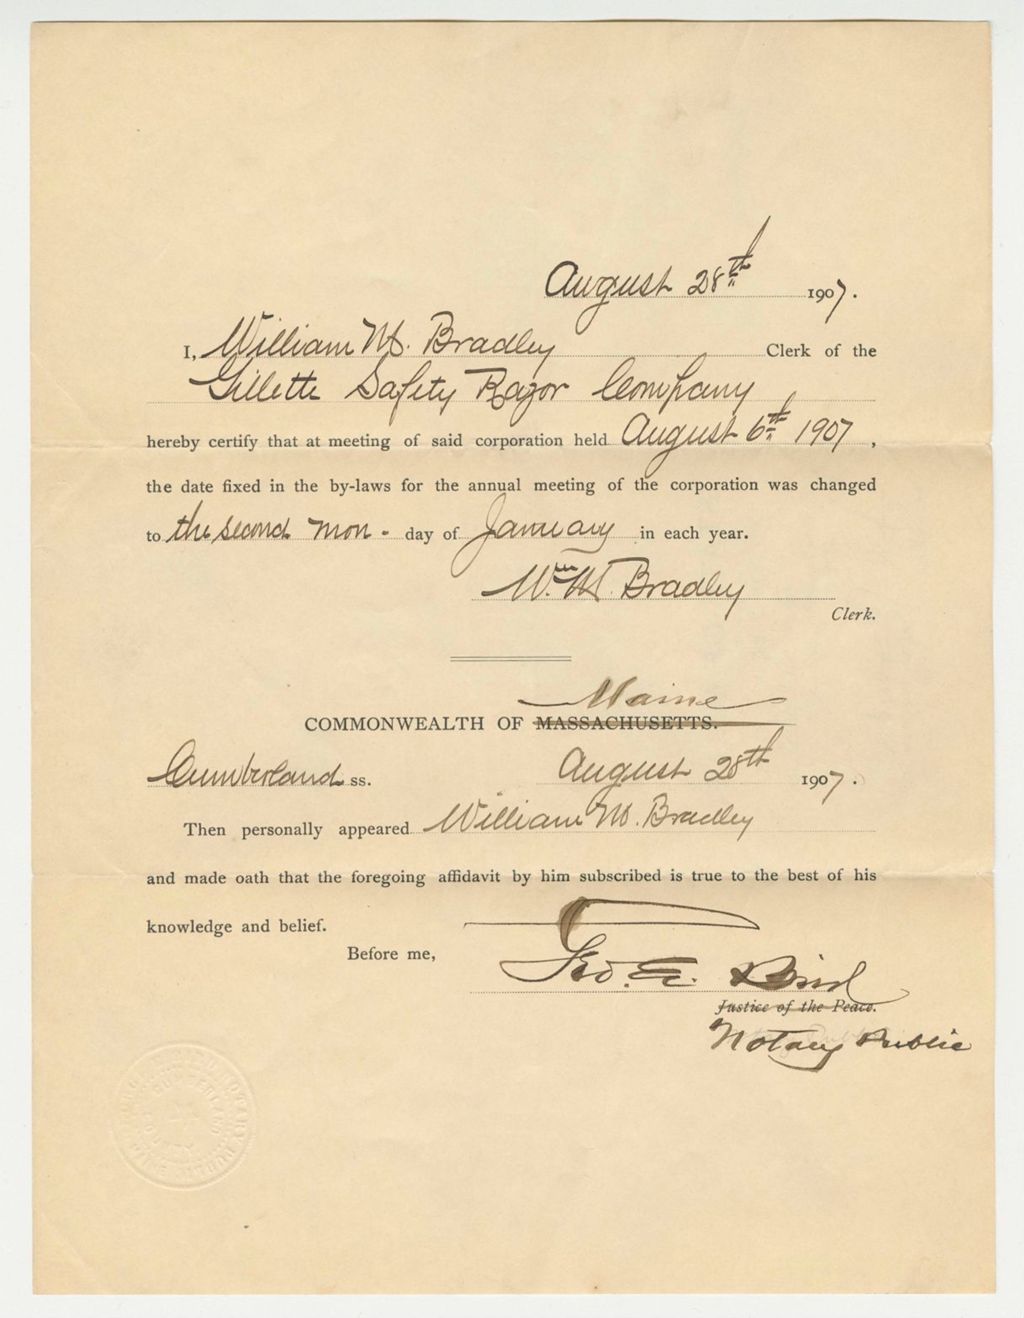 August 28th 1907.
I, William M. Bradley Clerk of the
Gillette Safety Razor Company
hereby certify that at meeting of said corporation held August 6th 1907,
the date fixed in the by-laws for the annual meeting of the corporation was changed
to the second mon- day of January in each year.
Wm. M. Bradley
Clerk.
Maine
COMMONWEALTH OF MASSACHUSETTS.
Cumberland ss. August 28th 1907.
Then personally appeared William M. Bradley
and made oath that the foregoing affidavit by him subscribed is true to the best of his
knowledge and belief.
Before me,
Geo. E. Bird
Justice of the Peace.
Notary Public
NOTARY PUBLIC
CUMBERLAND
COUNTY
MAINE